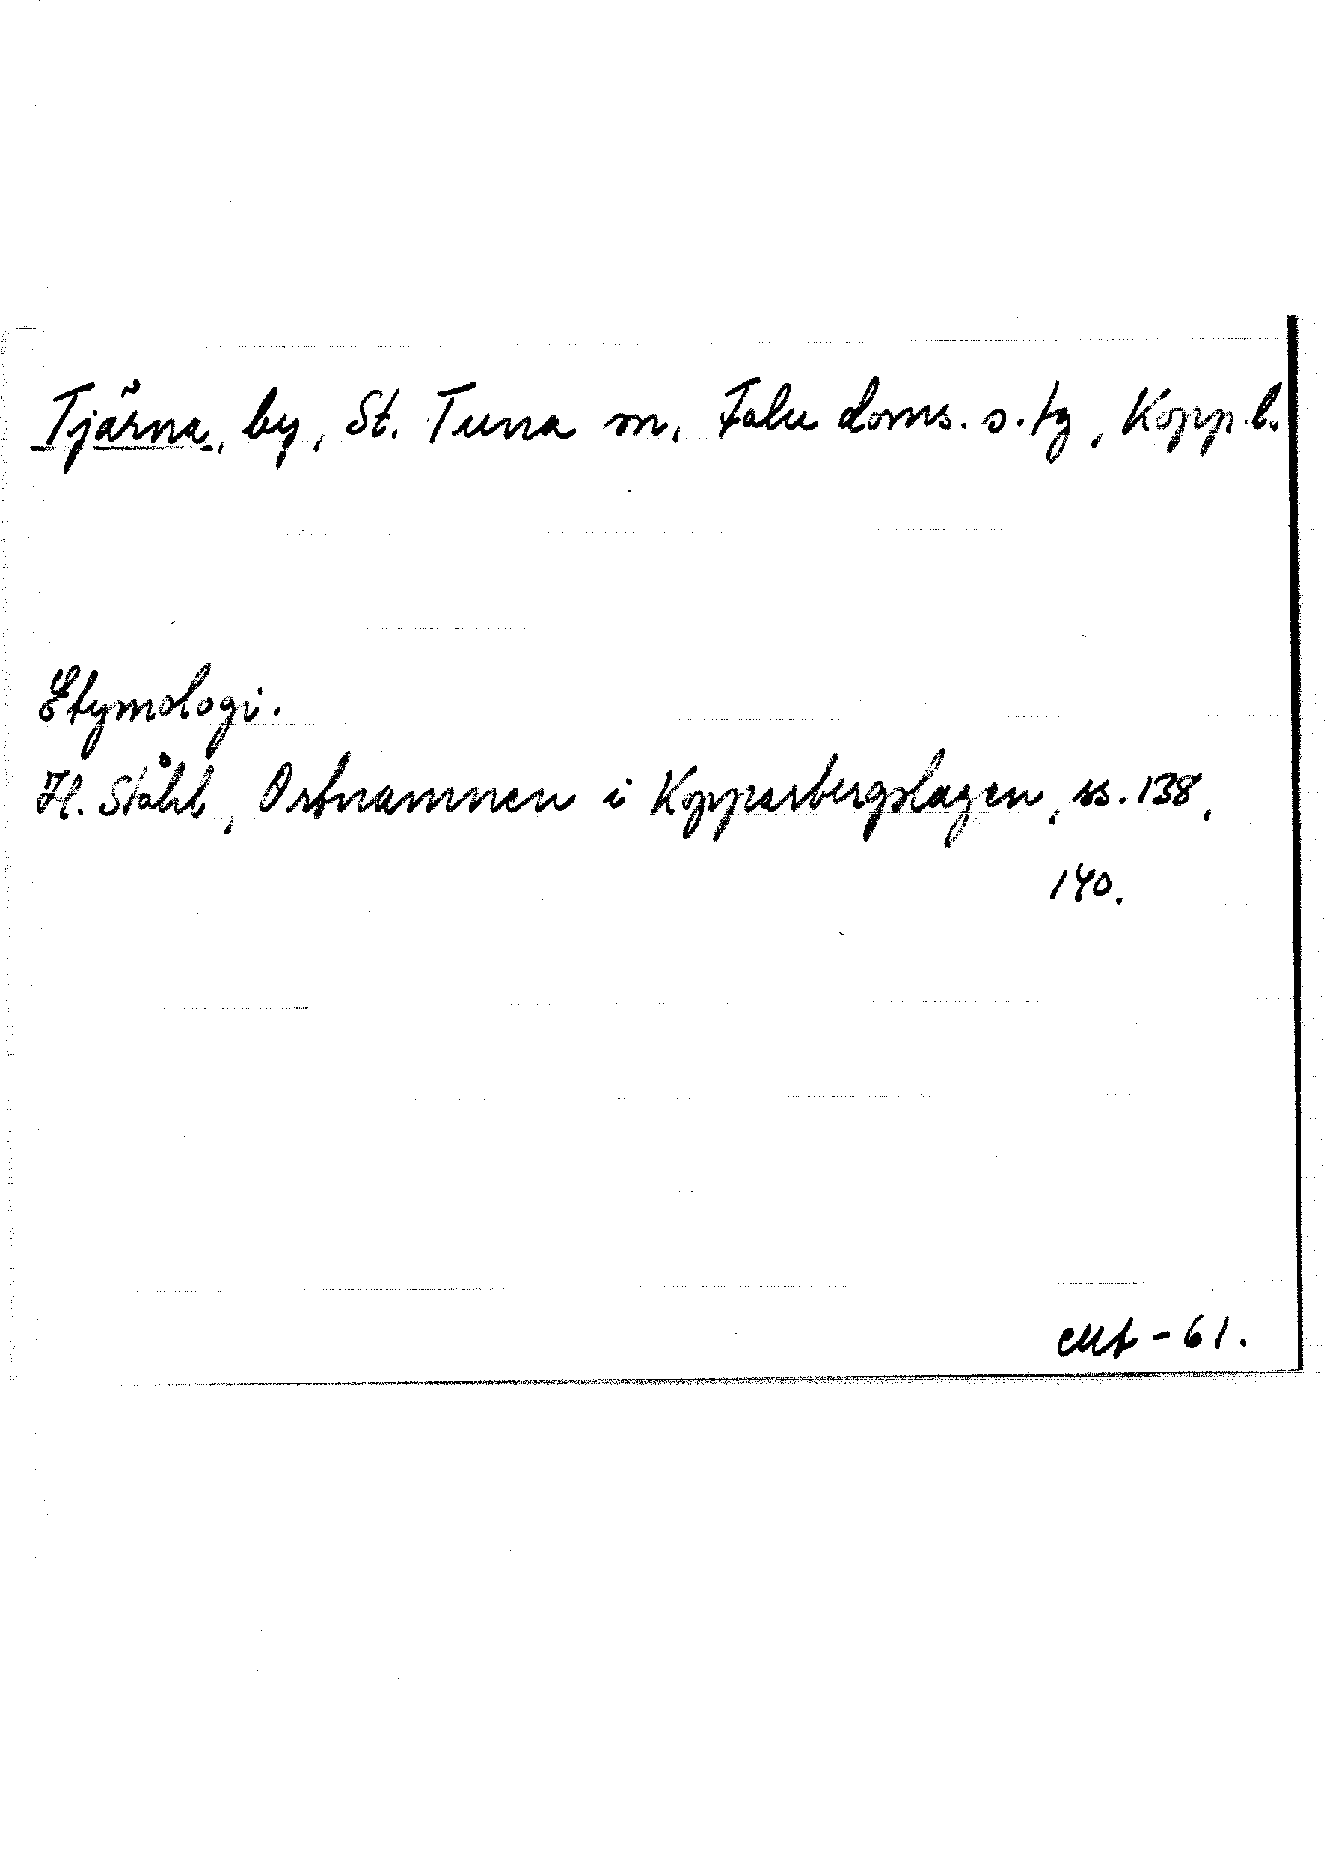 Tjärna, by, St. Tuna sn, Falu doms. s. tg, Kopp. l.
Etymologi.
H. Ståhl, Ortnamnen i Kopparbergslagen, ss. 138,
140.
-61.